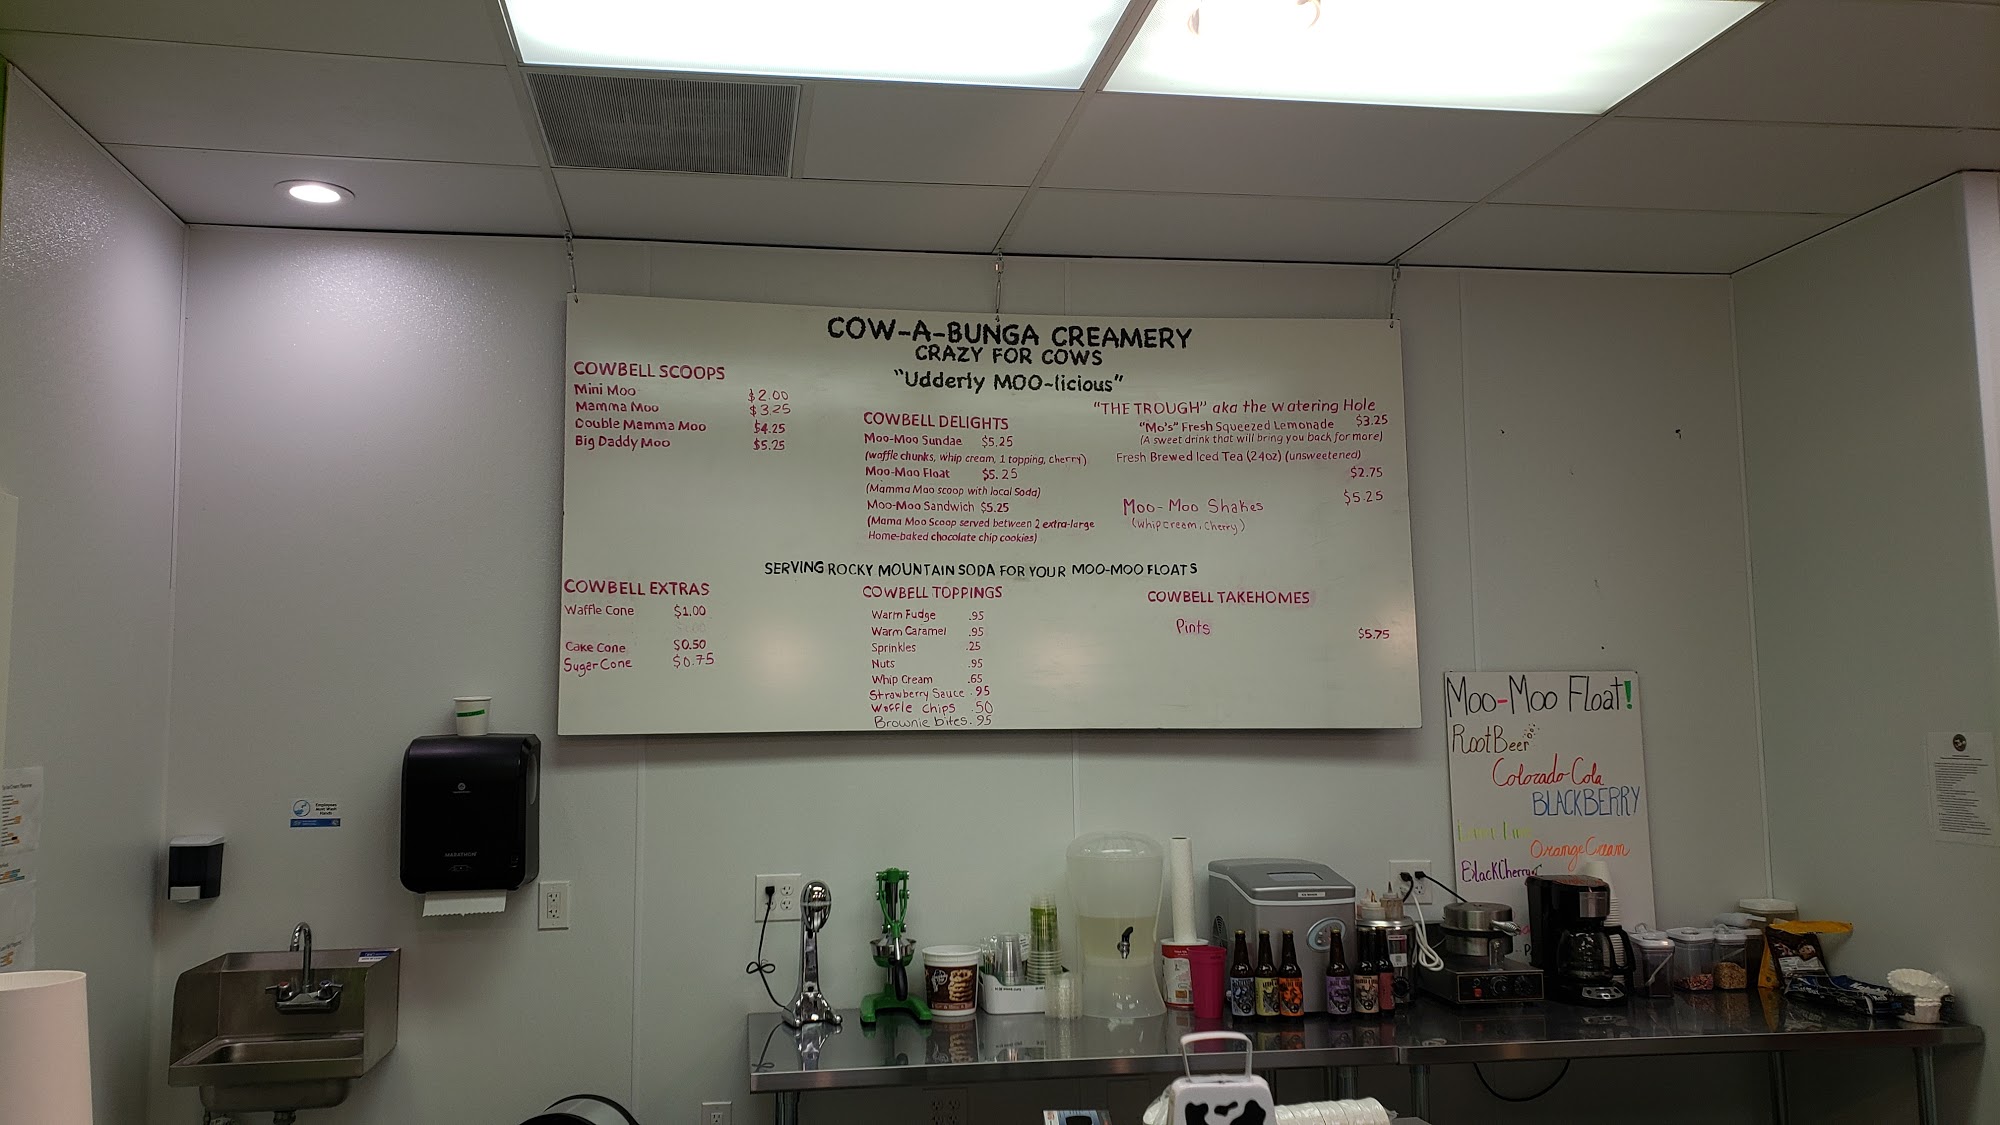 COW-A-BUNGA CREAMERY
CRAZY FOR COWS
"Udderly MOO-licious"
COWBELL SCOOPS
Mini Moo $2.00
Mamma Moo $3.25
Double Mamma Moo $4.25
Big Daddy Moo $5.25
COWBELL DELIGHTS
Moo-Moo Sundae $5.25
(waffle chunks, whip cream, 1 topping, cherry)
Moo-Moo Float $5.25
(Mamma Moo scoop with local Soda)
Moo-Moo Sandwich $5.25
(Mama Moo Scoop served between 2 extra-large
Home-baked chocolate chip cookies)
"THE TROUGH" aka the Watering Hole
"Mo's" Fresh Squeezed Lemonade $3.25
(A sweet drink that will bring you back for more)
Fresh Brewed Iced Tea (24oz) (unsweetened)
$2.75
Moo-Moo Shakes $5.25
(whip cream, cherry)
SERVING ROCKY MOUNTAIN SODA FOR YOUR MOO-MOO FLOATS
COWBELL EXTRAS
Waffle Cone $1.00
Cake Cone $0.50
Sugar Cone $0.75
COWBELL TOPPINGS
Warm Fudge .95
Warm Caramel .95
Sprinkles .25
Nuts .95
Whip Cream .65
Strawberry Sauce .95
Waffle chips .50
Brownie bites .95
COWBELL TAKEHOMES
Pints $5.75
Moo-Moo Float!
Root Beer
Colorado Cola
BLACKBERRY
Orange Cream
Black Cherry
Employees
Must Wash
Hands
MARATHON